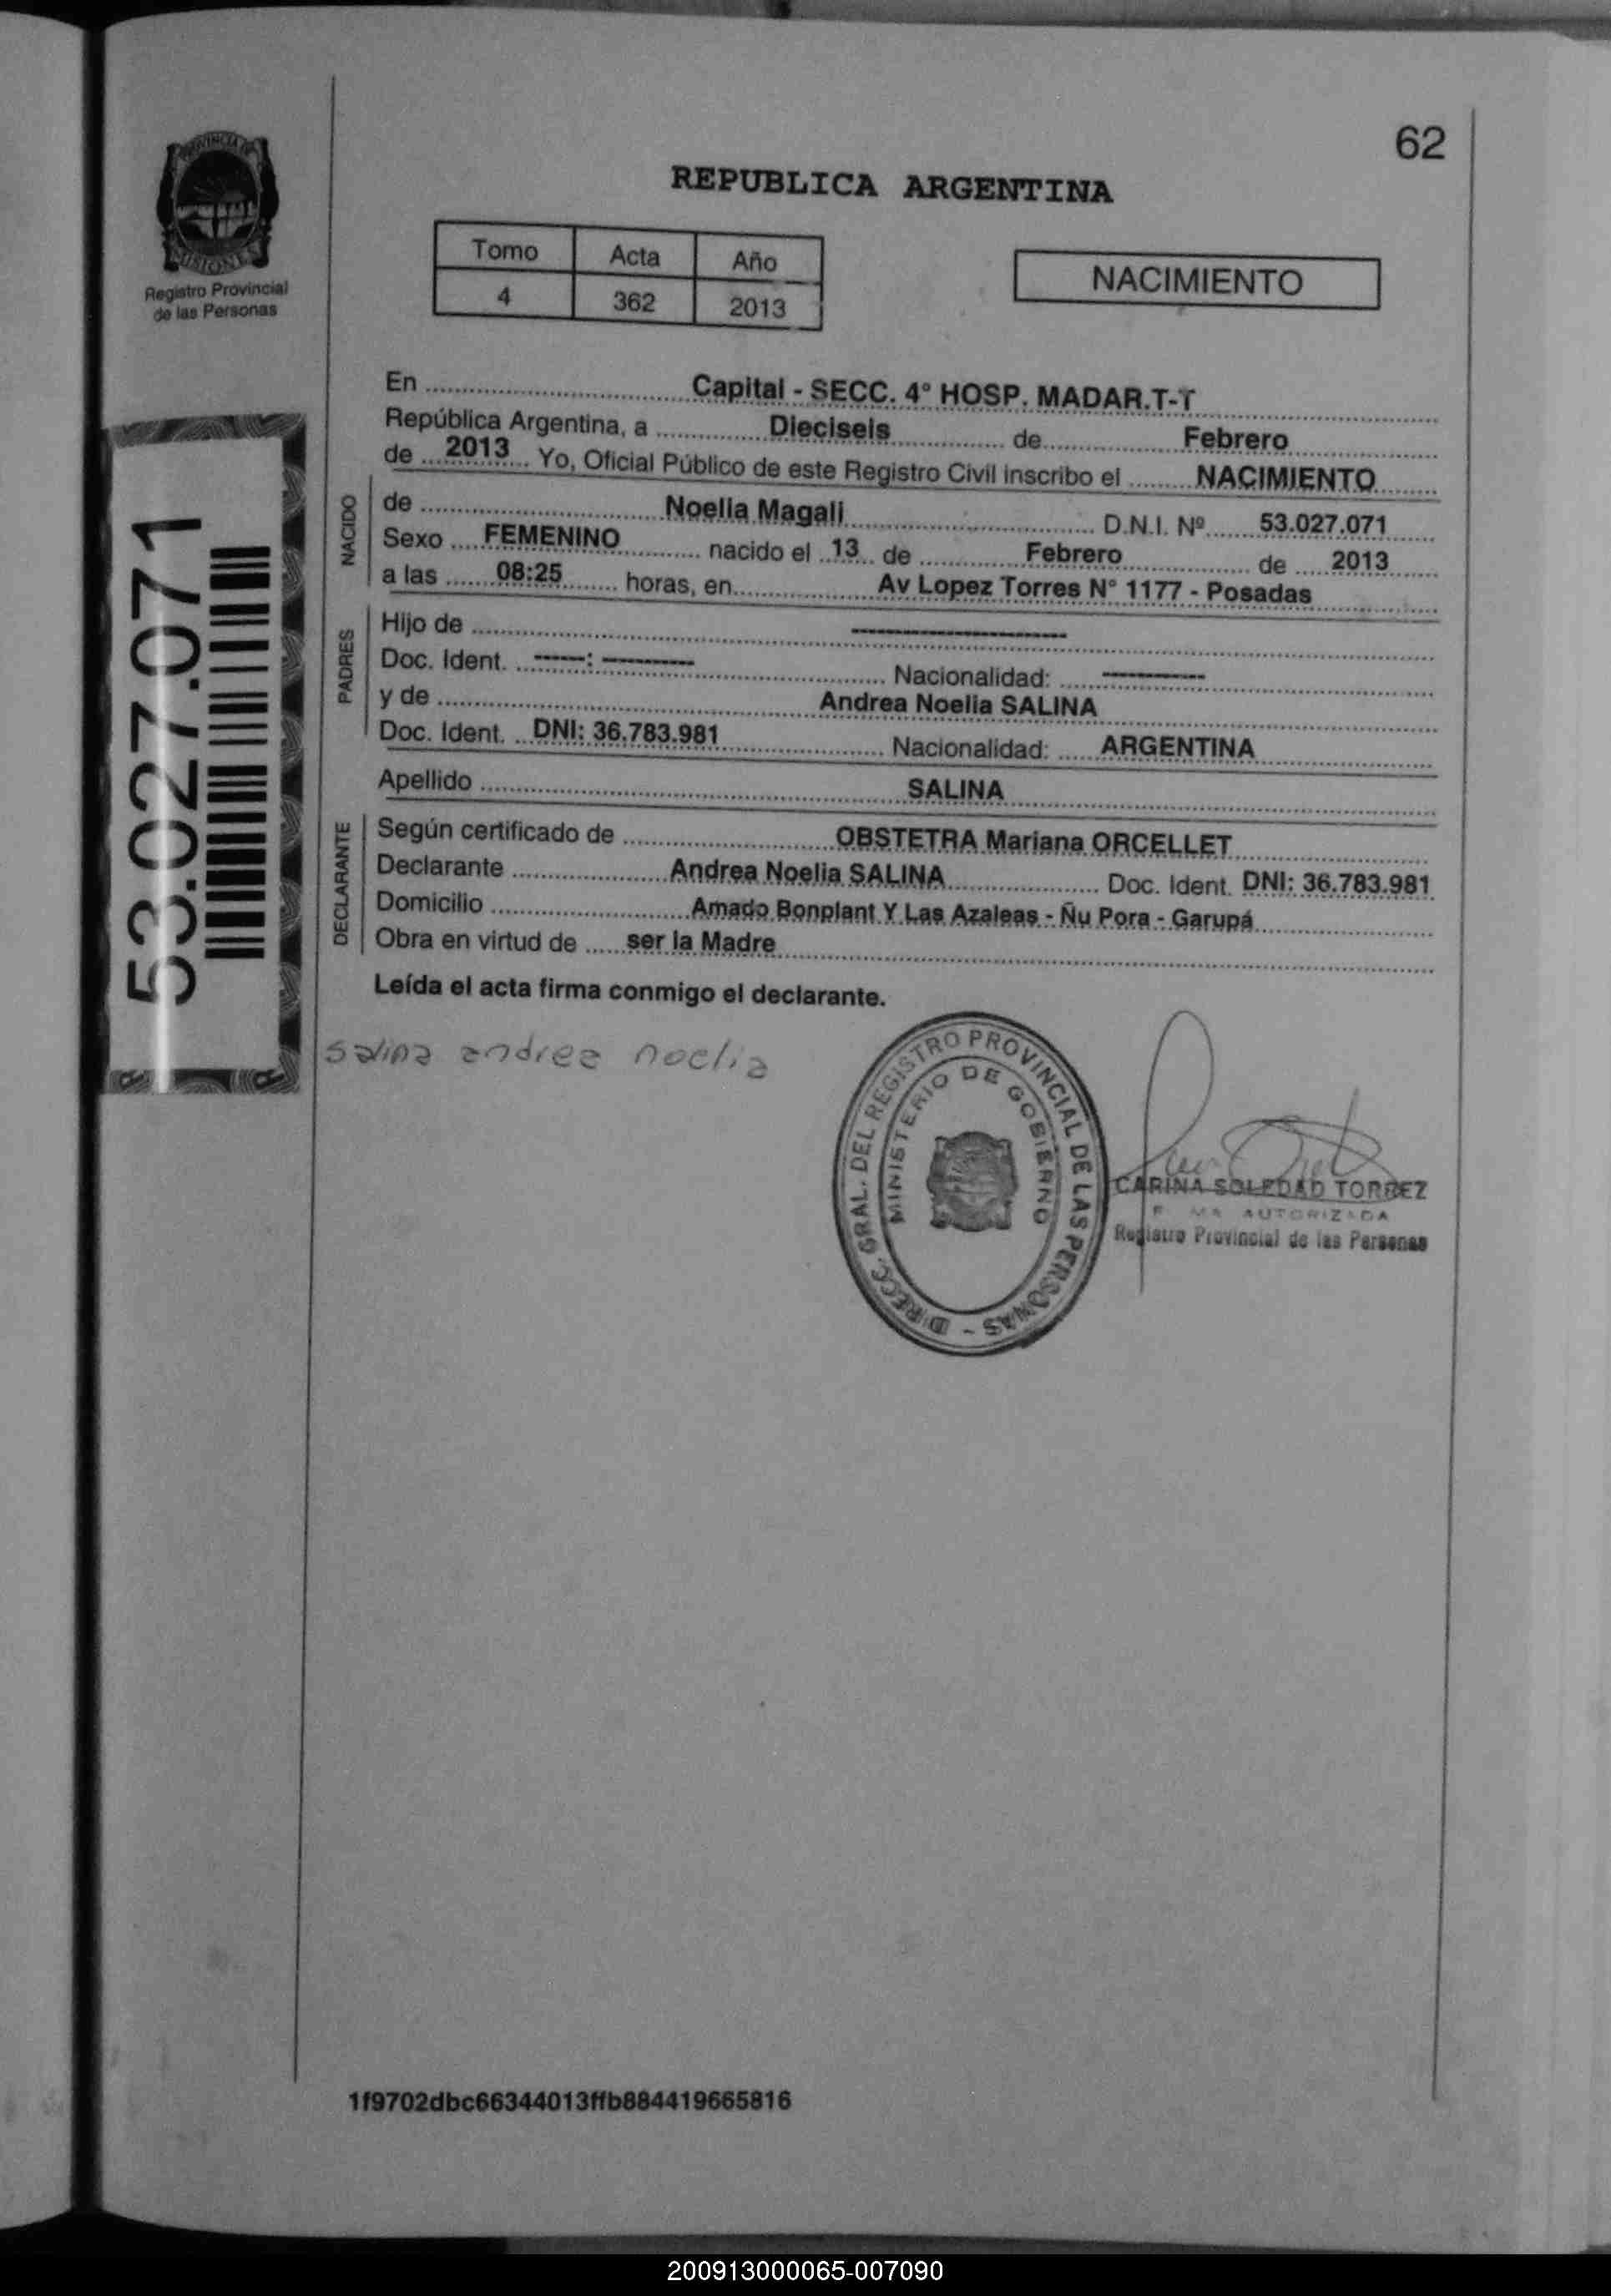 62
REPUBLICA ARGENTINA
PROVINCIA DE
MISIONES
Registro Provincial
de las Personas
Tomo Acta Año
4 362 2013
NACIMIENTO
En Capital - SECC. 4° HOSP. MADAR.T-T
República Argentina, a Dieciseis de Febrero
de 2013 Yo, Oficial Público de este Registro Civil inscribo el NACIMIENTO
NACIDO
de Noelia Magali D.N.I. Nº 53.027.071
Sexo FEMENINO nacido el 13 de Febrero de 2013
a las 08:25 horas, en Av Lopez Torres N° 1177 - Posadas
PADRES
Hijo de --------------------
Doc. Ident. -----: --------- Nacionalidad: ----------
y de Andrea Noelia SALINA
Doc. Ident. DNI: 36.783.981 Nacionalidad: ARGENTINA
Apellido SALINA
DECLARANTE
Según certificado de OBSTETRA Mariana ORCELLET
Declarante Andrea Noelia SALINA Doc. Ident. DNI: 36.783.981
Domicilio Amado Bonplant Y Las Azaleas - Ñu Pora - Garupá
Obra en virtud de ser la Madre
Leída el acta firma conmigo el declarante.
53.027.071
salina andrea noelia
DIRECC. GRAL. DEL REGISTRO PROVINCIAL DE LAS PERSONAS -
MINISTERIO DE GOBIERNO
CARINA SOLEDAD TORREZ
AUTORIZADA
Registro Provincial de las Personas
1f9702dbc66344013ffb884419665816
200913000065-007090